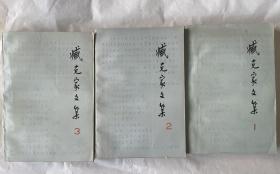 臧克家文集
3
臧克家文集
2
臧克家文集
1